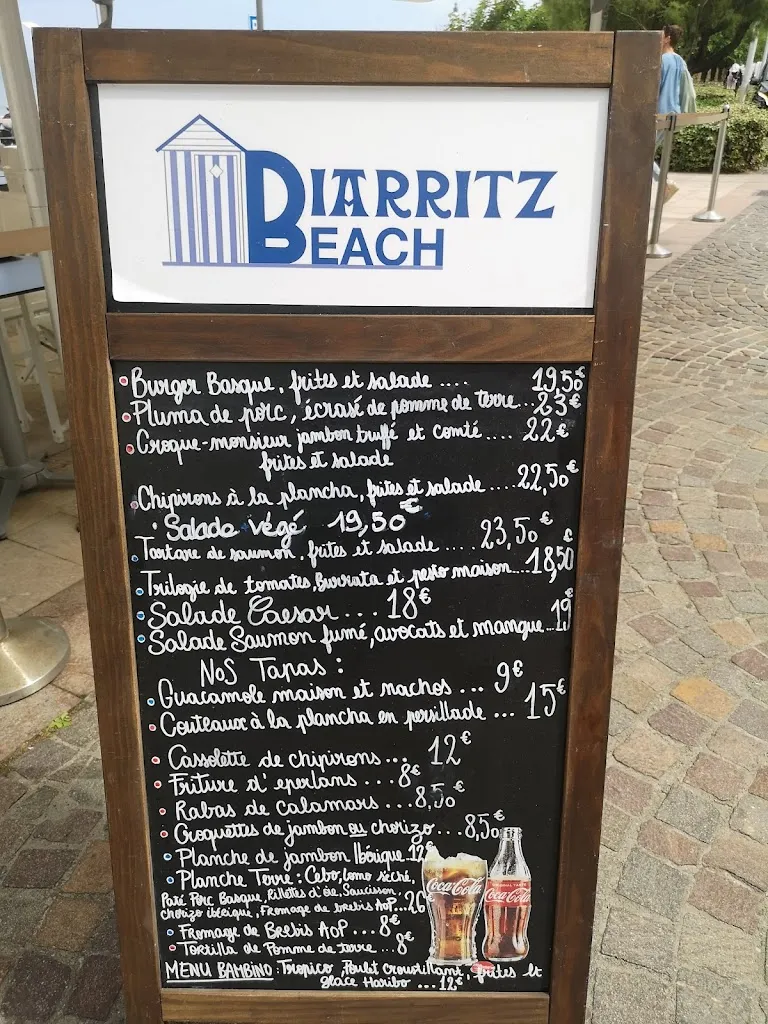 BIARRITZ
BEACH
Burger Basque, frites et salade .... 19,50€
Pluma de porc, écrasé de pomme de terre... 23€
Croque-monsieur jambon truffé et comté .... 22€
frites et salade
Chipirons à la plancha, frites et salade .... 22,50€
Salade végé 19,50€
Tartare de saumon, frites et salade .... 23,50€
Trilogie de tomates, Burrata et pesto maison... 18,50€
Salade Caesar ... 18€
Salade Saumon fumé, avocats et mangue... 19€
NoS Tapas :
Guacamole maison et nachos ... 9€
Couteaux à la plancha en persillade ... 15€
Cassolette de chipirons... 12€
Friture d'eperlans ... 8€
Rabas de calamars ... 8,50€
Croquettes de jambon ou chorizo... 8,50€
Planche de jambon Ibérique 12€
Planche Terre : Cebo, lomo séché,
Paté Porc Basque, Rillettes d'oie, Saucisson,
chorizo ibérique, Fromage de brebis AoP...20
Fromage de Brebis AOP ... 8€
Tortilla de Pomme de terre ... 8€
MENU BAMBINO : Tropico, Poulet Croustillant, frites et
glace Haribo ... 12€
Coca-Cola
Coca-Cola